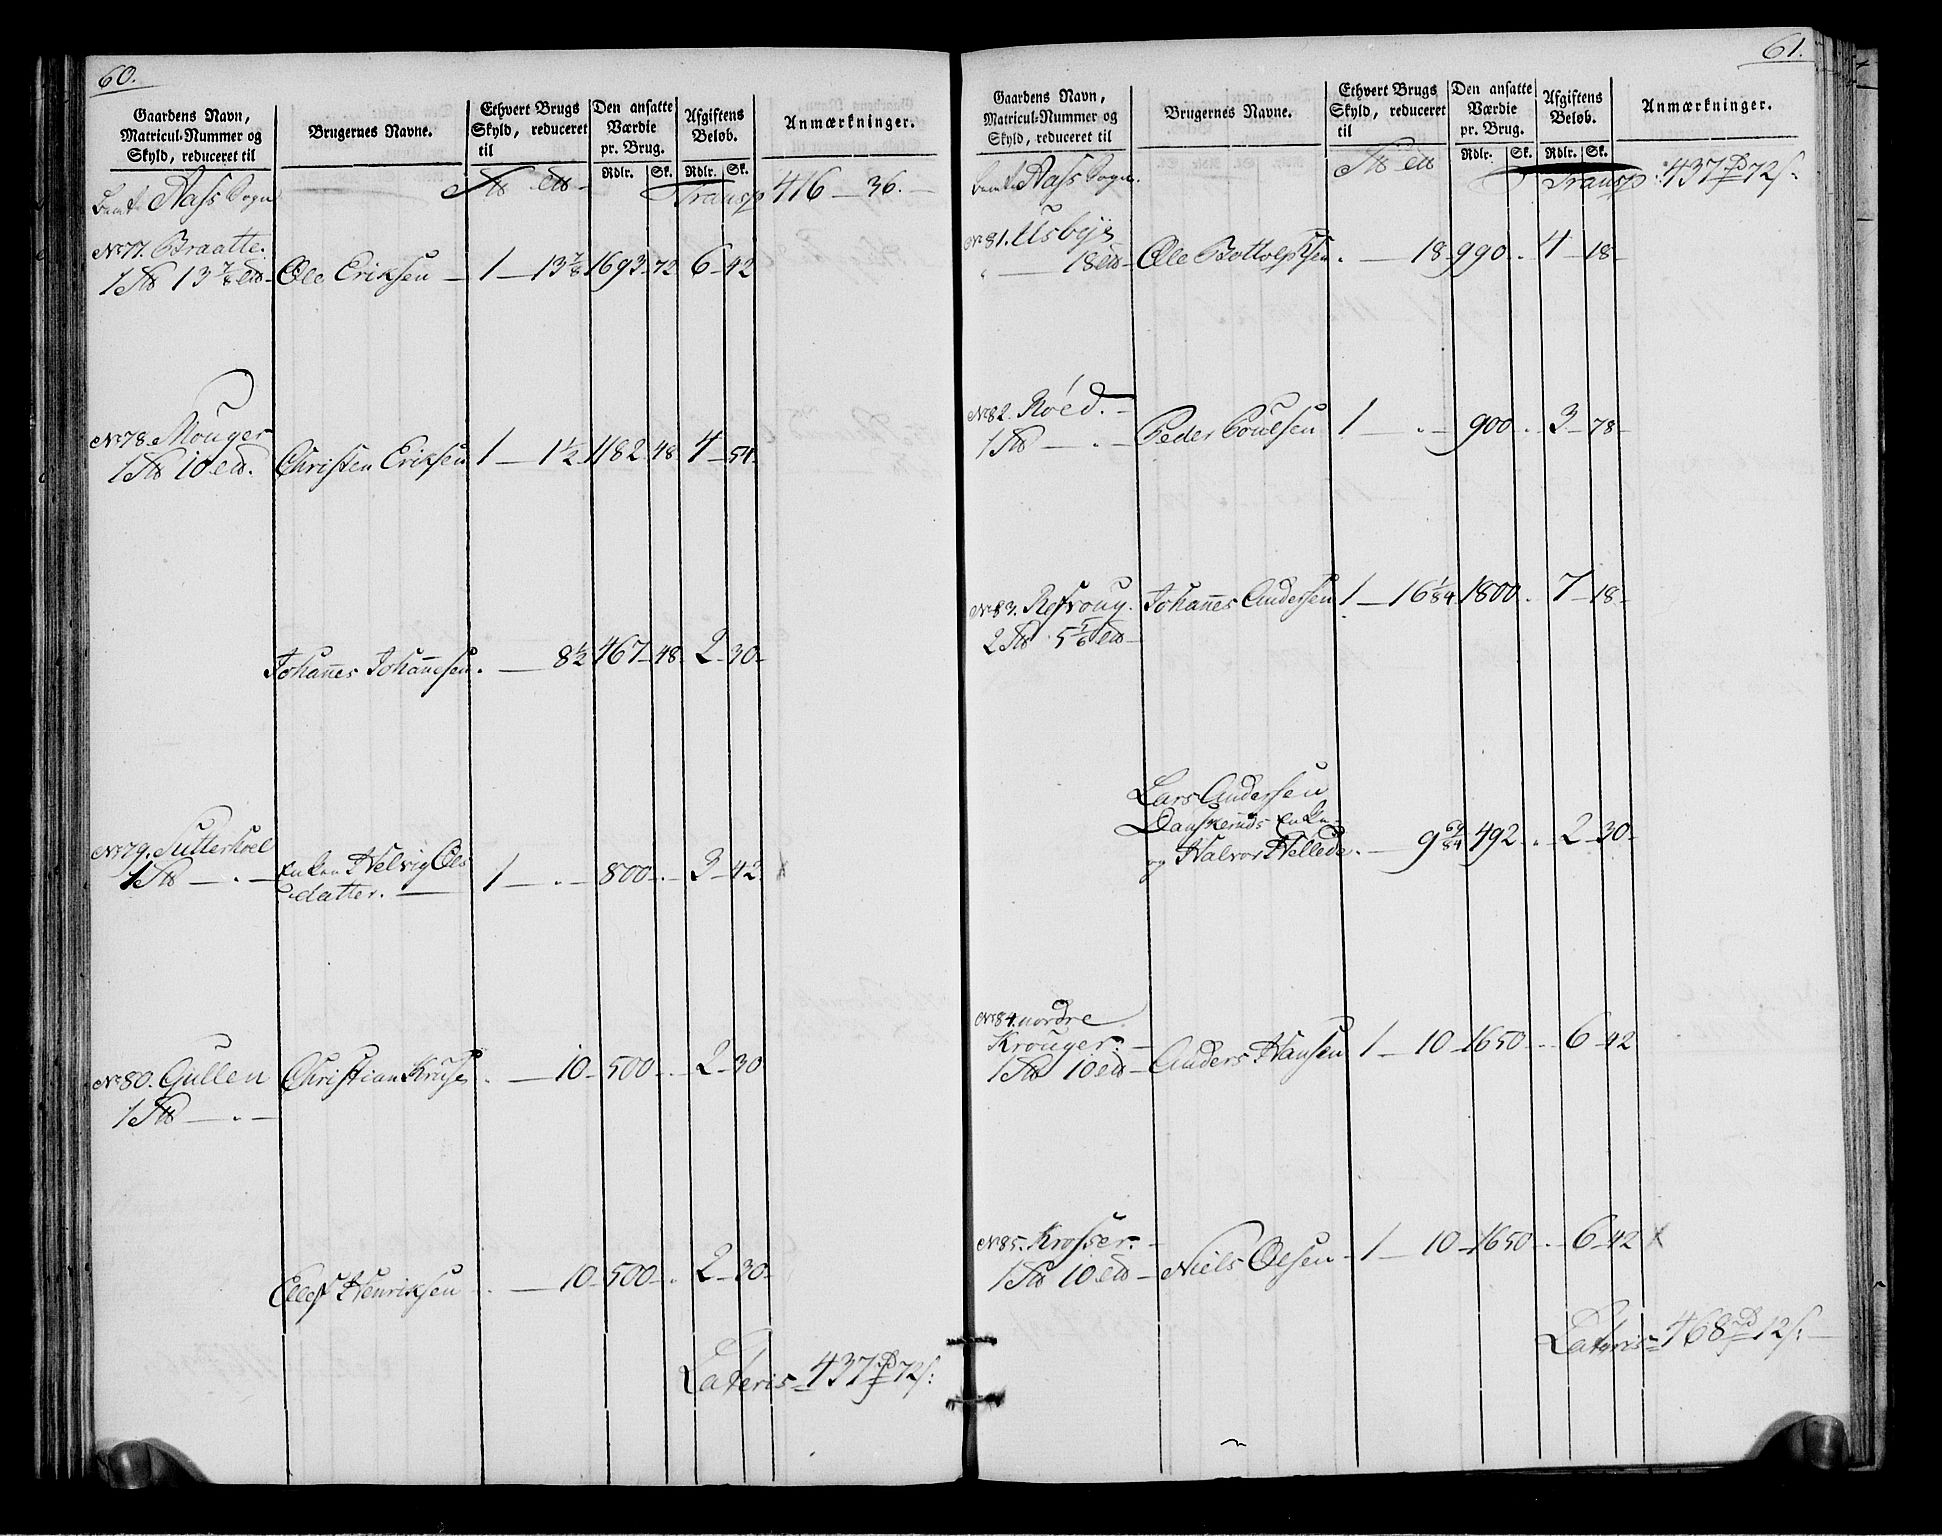 60.
Gaardens Navn,
Matricul-Nummer og
Skyld, reduceret til
Brugernes Navne.
Ethvert Brugs
Skyld, reduceret
til
Den ansatte
Værdie
pr. Brug.
Rdlr. Sk.
Afgiftens
Beløb.
Rdlr. Sk.
Anmærkninger.
Aass Sogn
Transp 416 - 36.
No 77. Braatte.
1 13 7/8 Ole Eriksen 1 - 13 7/8 1693 - 72 6 - 42
No 78. Mouger
1 10 Christen Eriksen 1 - 1 1/2 1182 48 4 - 54
Johannes Johannesen . - 8 1/2 467 - 48 2 - 30
No 79. Sutterhoel
1 - . - Enken Helvig Ols 1 - . - 800 - . - 3 - 42
datter.
No 80. Gullen
1 - . - Christian Kruse . - 10 - 500 - . 2 - 30
Ellef Henriksen . - 10 - 500 - . 2 - 30
Lateris 437 72
61.
Gaardens Navn,
Matricul-Nummer og
Skyld, reduceret til
Brugernes Navne.
Ethvert Brugs
Skyld, reduceret
til
Den ansatte
Værdie
pr. Brug.
Rdlr. Sk.
Afgiftens
Beløb.
Rdlr. Sk.
Anmærkninger.
Aass Sogn.
Transp: 437 72
No 81. Usbye
18 Ole Bottolphsen . - 18 - 990 . 4 - 18
No 82. Røed.
1 - . - Peder Poulsen 1 - . - 900 . 3 - 78
No 83. Refroug.
2 5 5/6 Johannes Andersen 1 - 16 1/84 1800 . 7 - 18
Lars Andersen
Danskeruds Enke
og Halvor Hellede . - 9 69/84 492 . 2 - 30
No 84. nordre
Krouger.
1 10 Anders Hansen 1 - 10 - 1650 . 6 - 42
No 85. Krosser.
1 10 Niels Olsen 1 - 10 - 1650 . 6 - 42
Lateris 468 12